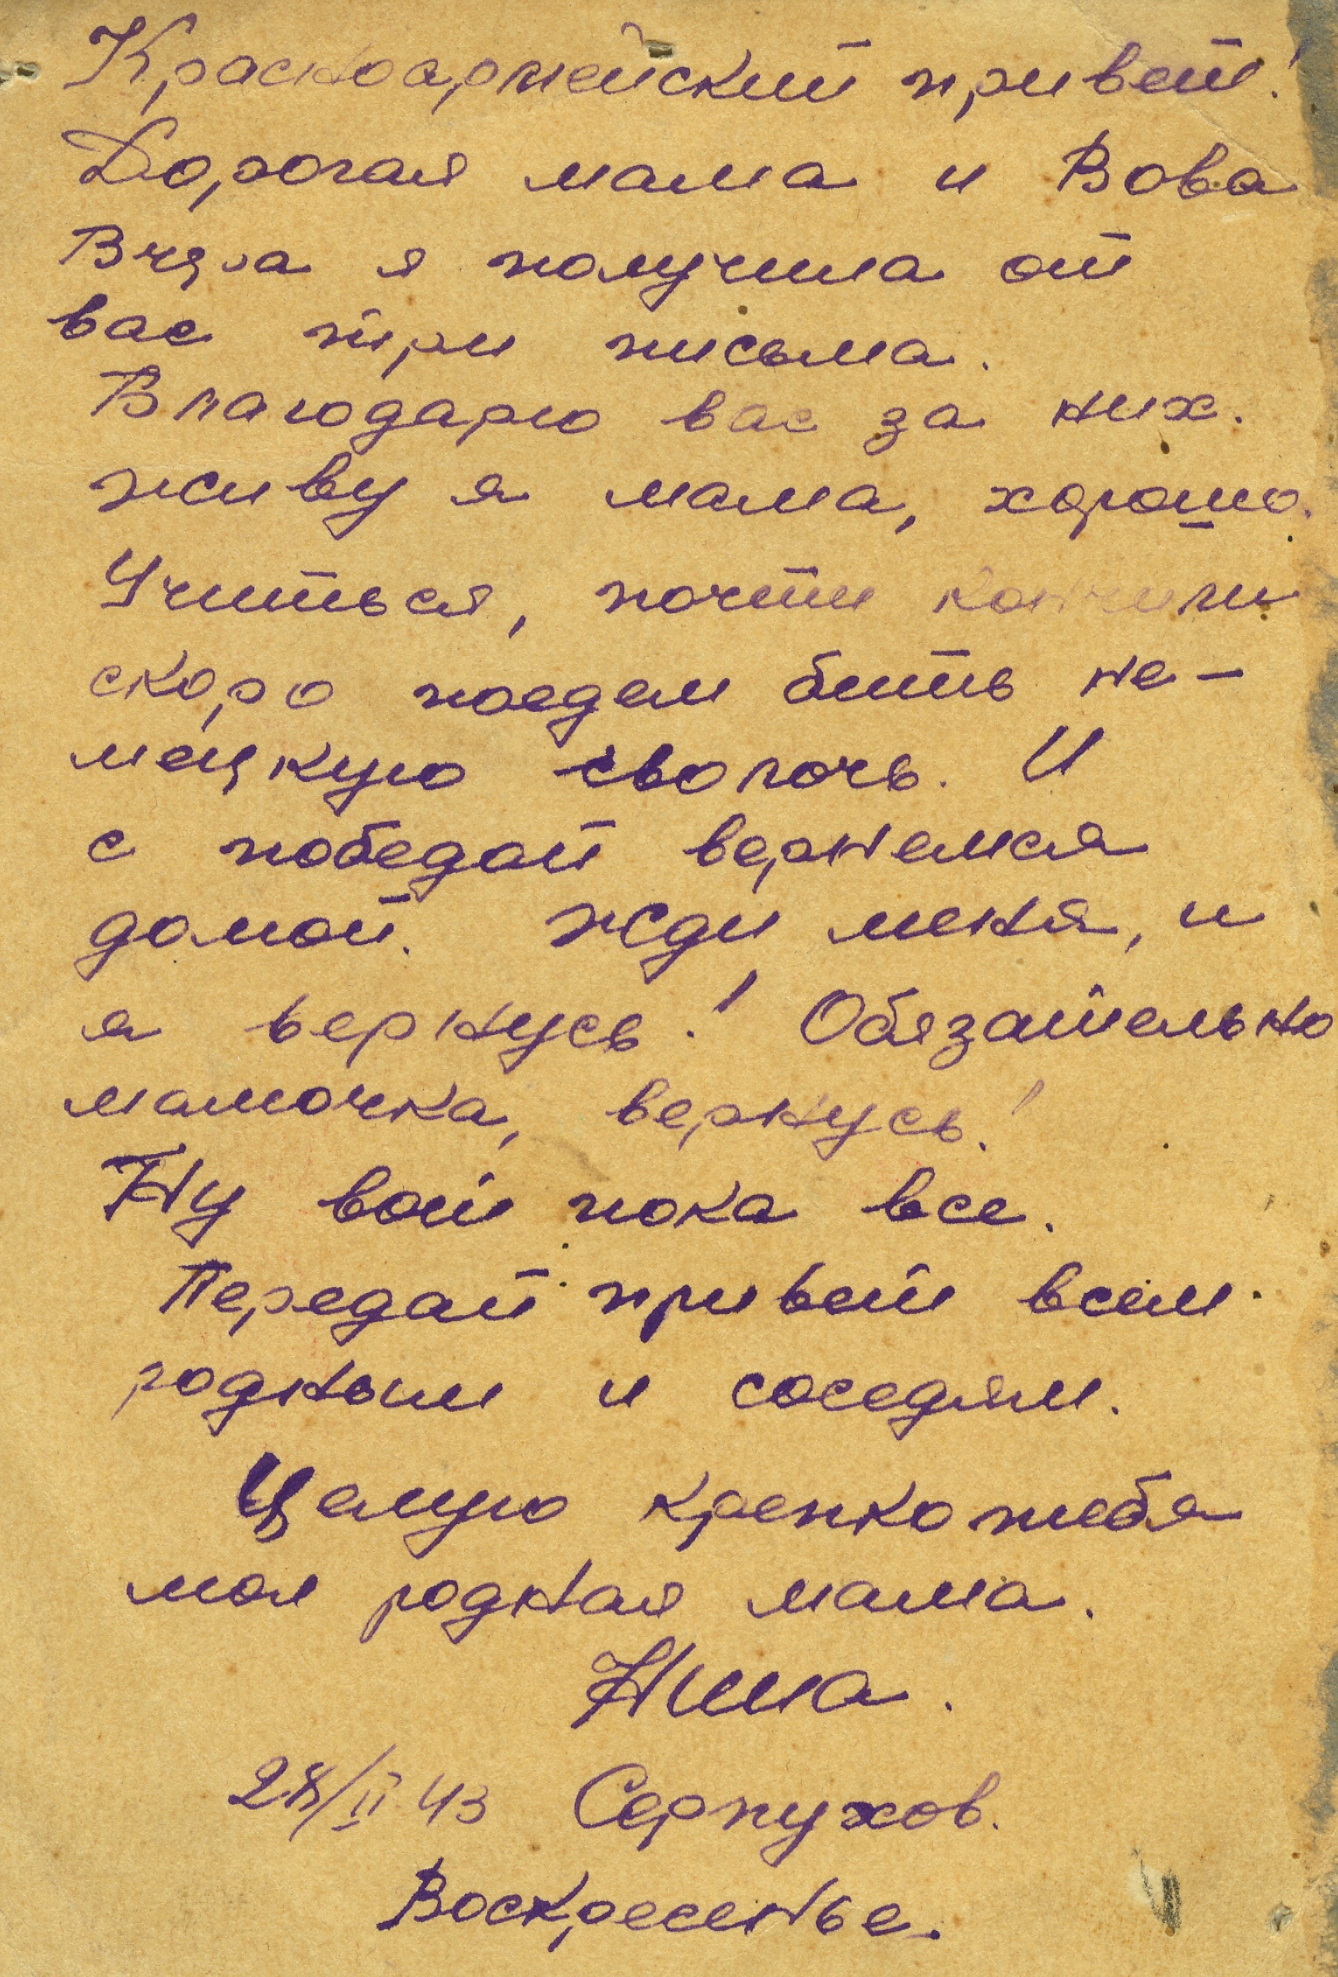 Красноармейский привет!
Дорогая мама и Вова
Вчера я получила от
вас три письма.
Благодарю вас за них.
живу я мама, хорошо.
Учиться, почти кончили
скоро поедем бить не-
мецкую сволочь. И
с победой вернемся
домой. Жди меня, и
я вернусь! Обязательно
мамочка, вернусь!
Ну вот пока все.
Передай привет всем
родным и соседям.
Целую крепко тебя
моя родная мама.
Нина.
28/II 43 Серпухов.
Воскресенье.